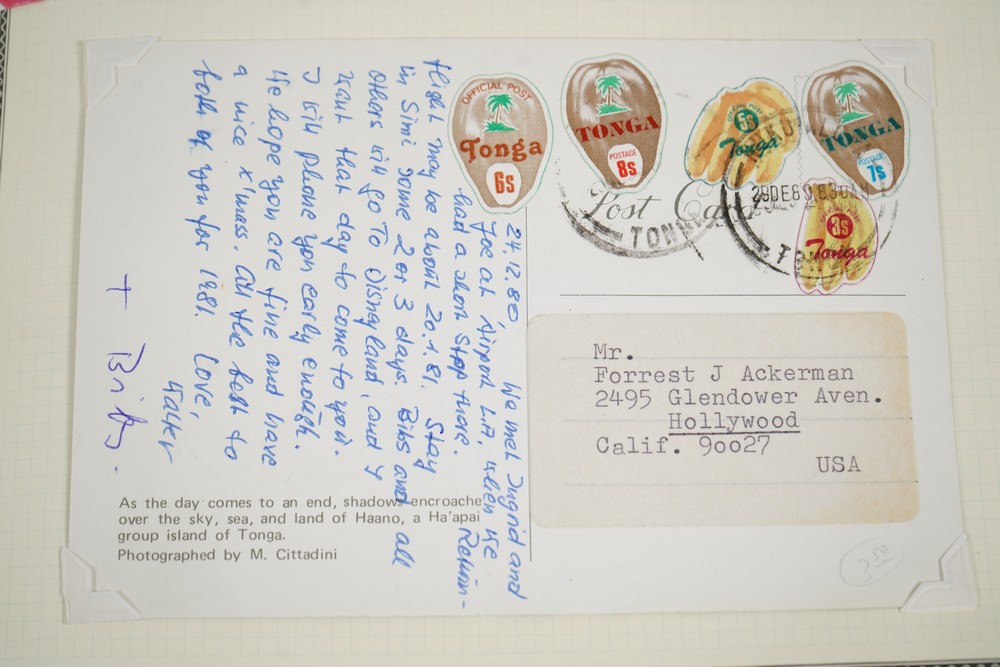 OFFICIAL POST
Tonga
6s
TONGA
POSTAGE
8s
6s
Tonga
TONGA
POSTAGE
7s
3s
Tonga
Post Card
TONGA
Mr.
Forrest J Ackerman
2495 Glendower Aven.
Hollywood
Calif. 90027
USA
24.12.80, We met Ingrid and
Joe at Airport L.A, when we
had a short Stop there. Return-
flight may be about 20.1.81. Stay
in Simi some 2 or 3 days. Bibs and all
others will go to Disneyland, and I
want that day to come to you.
I will phone you early enough.
We hope you are fine and have
a nice X'mess. All the best to
both of you for 1981. Love,
Walter
+ Bibs.
As the day comes to an end, shadows encroache
over the sky, sea, and land of Haano, a Ha'apai
group island of Tonga.
Photographed by M. Cittadini
3.50